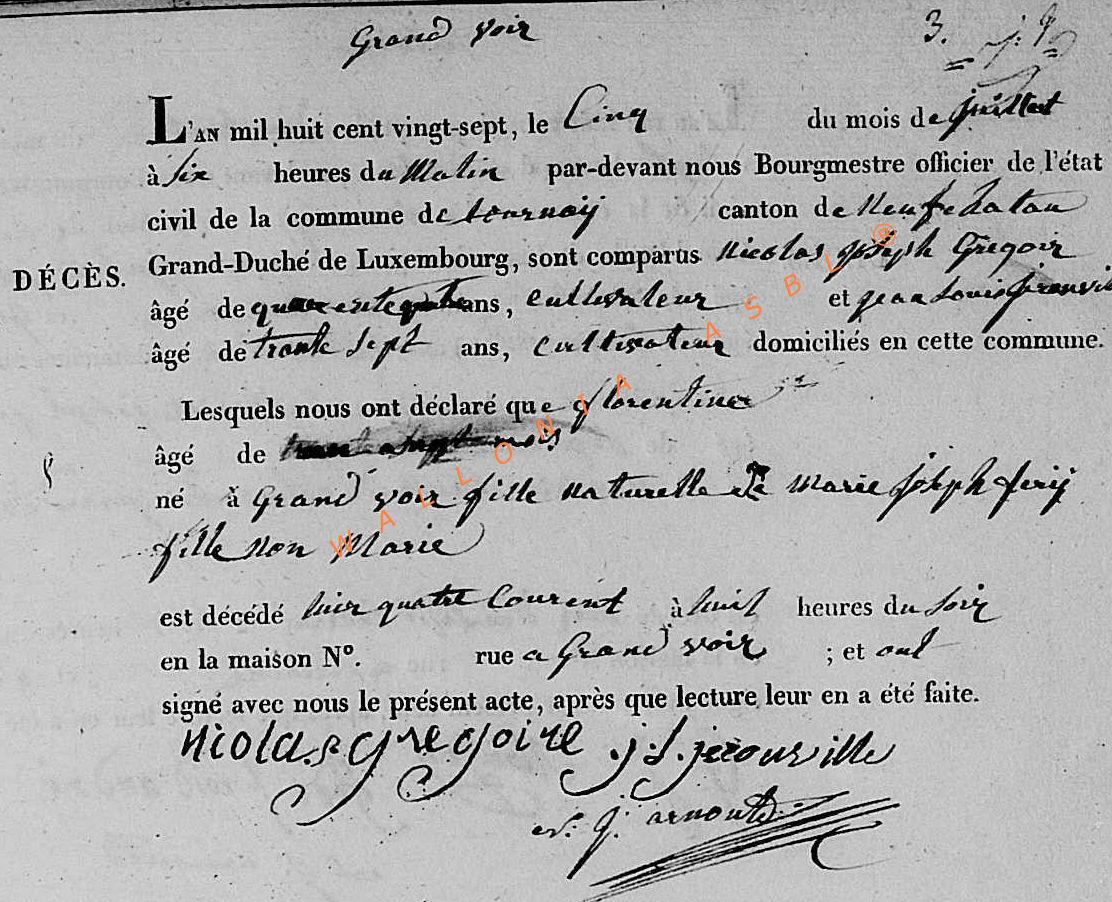 Grand voir
3.
L'AN mil huit cent vingt-sept, le Cinq du mois de juillet
à Six heures du Matin par-devant nous Bourgmestre officier de l'état
civil de la commune de tournay canton de Neufchatau
DÉCÈS.
Grand-Duché de Luxembourg, sont comparus Nicolas joseph Gregoir
âgé de ans, Cultivateur et jean Louis
âgé de trante Sept ans, Cultivateur domiciliés en cette commune.
Lesquels nous ont déclaré que florentine
âgé de mois
né à Grand voir fille naturelle de Marie joseph
fille non Marie
est décédé hier quatre Courent à huit heures du Soir
en la maison N°. rue a Grand voir ; et ont
signé avec nous le présent acte, après que lecture leur en a été faite.
Nicolas Gregoire j. l. jerouville
arnould
WALLONIA ASBL ®